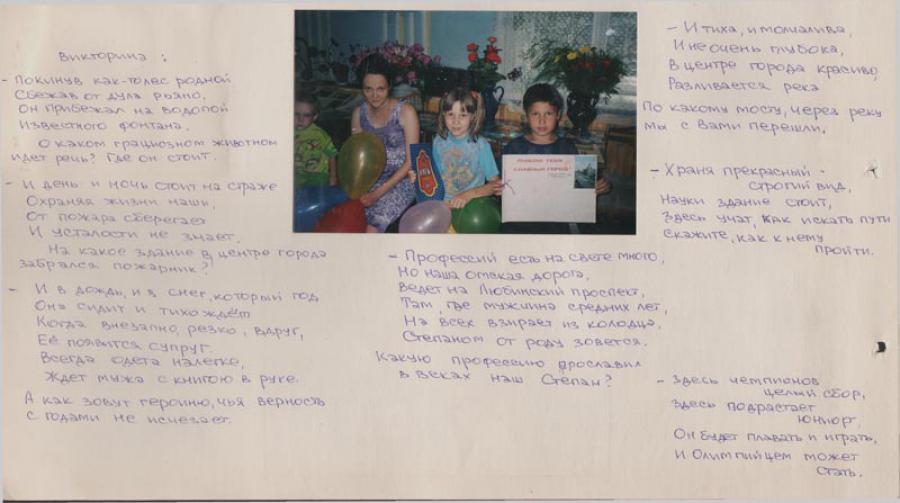 Викторина:
- Покинув как-то лес родной
Сбежав от дула рьяно,
Он прибежал на водопой
Известного фонтана.
О каком грациозном животном
идет речь? Где он стоит.
- И день и ночь стоит на страже
Охраняя жизни наши,
От пожара сберегает
И усталости не знает.
На какое здание в центре города
забрался пожарник?
- И в дождь, и в снег, который год
Она сидит и тихо ждёт
Когда внезапно, резко, вдруг,
Её появится супруг.
Всегда одета налегке,
Ждет мужа с книгою в руке.
А как зовут героиню, чья верность
с годами не исчезает.
- Профессий есть на свете много,
Но наша омская дорога,
Ведет на Любинский проспект,
Там, где мужчина средних лет,
На всех взирает из колодца,
Степаном от роду зовется.
Какую профессию прославил
в веках наш Степан?
- И тиха, и молчалива,
И не очень глубока,
В центре города красиво,
Разливается река
По какому мосту, через реку
мы с вами перешли.
- Храня прекрасный -
строгий вид,
Науки здание стоит,
Здесь учат, как искать пути
Скажите, как к нему
пройти.
- Здесь чемпионов
целый сбор,
Здесь подрастает
юниор,
Он будет плавать и играть,
И Олимпийцем может
стать.